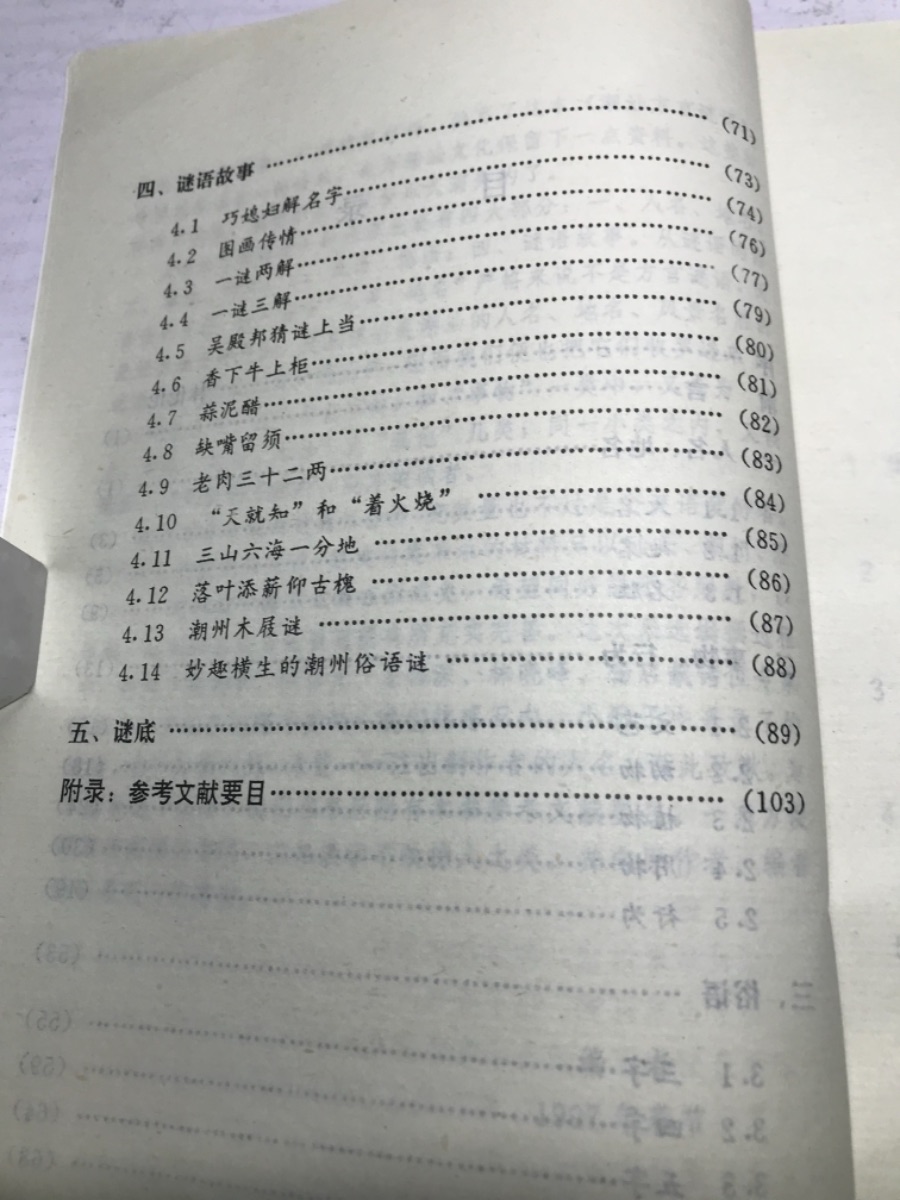 四、谜语故事 …… (71)
4.1 巧媳妇解名字 …… (73)
4.2 图画传情 …… (74)
4.3 一谜两解 …… (76)
4.4 一谜三解 …… (77)
4.5 吴殿邦猜谜上当 …… (79)
4.6 香下牛上柜 …… (80)
4.7 蒜泥醋 …… (81)
4.8 缺嘴留须 …… (82)
4.9 老肉三十二两 …… (83)
4.10 “天就知”和“着火烧” …… (84)
4.11 三山六海一分地 …… (85)
4.12 落叶添薪仰古槐 …… (86)
4.13 潮州木屐谜 …… (87)
4.14 妙趣横生的潮州俗语谜 …… (88)
五、谜底 …… (89)
附录：参考文献要目 …… (103)